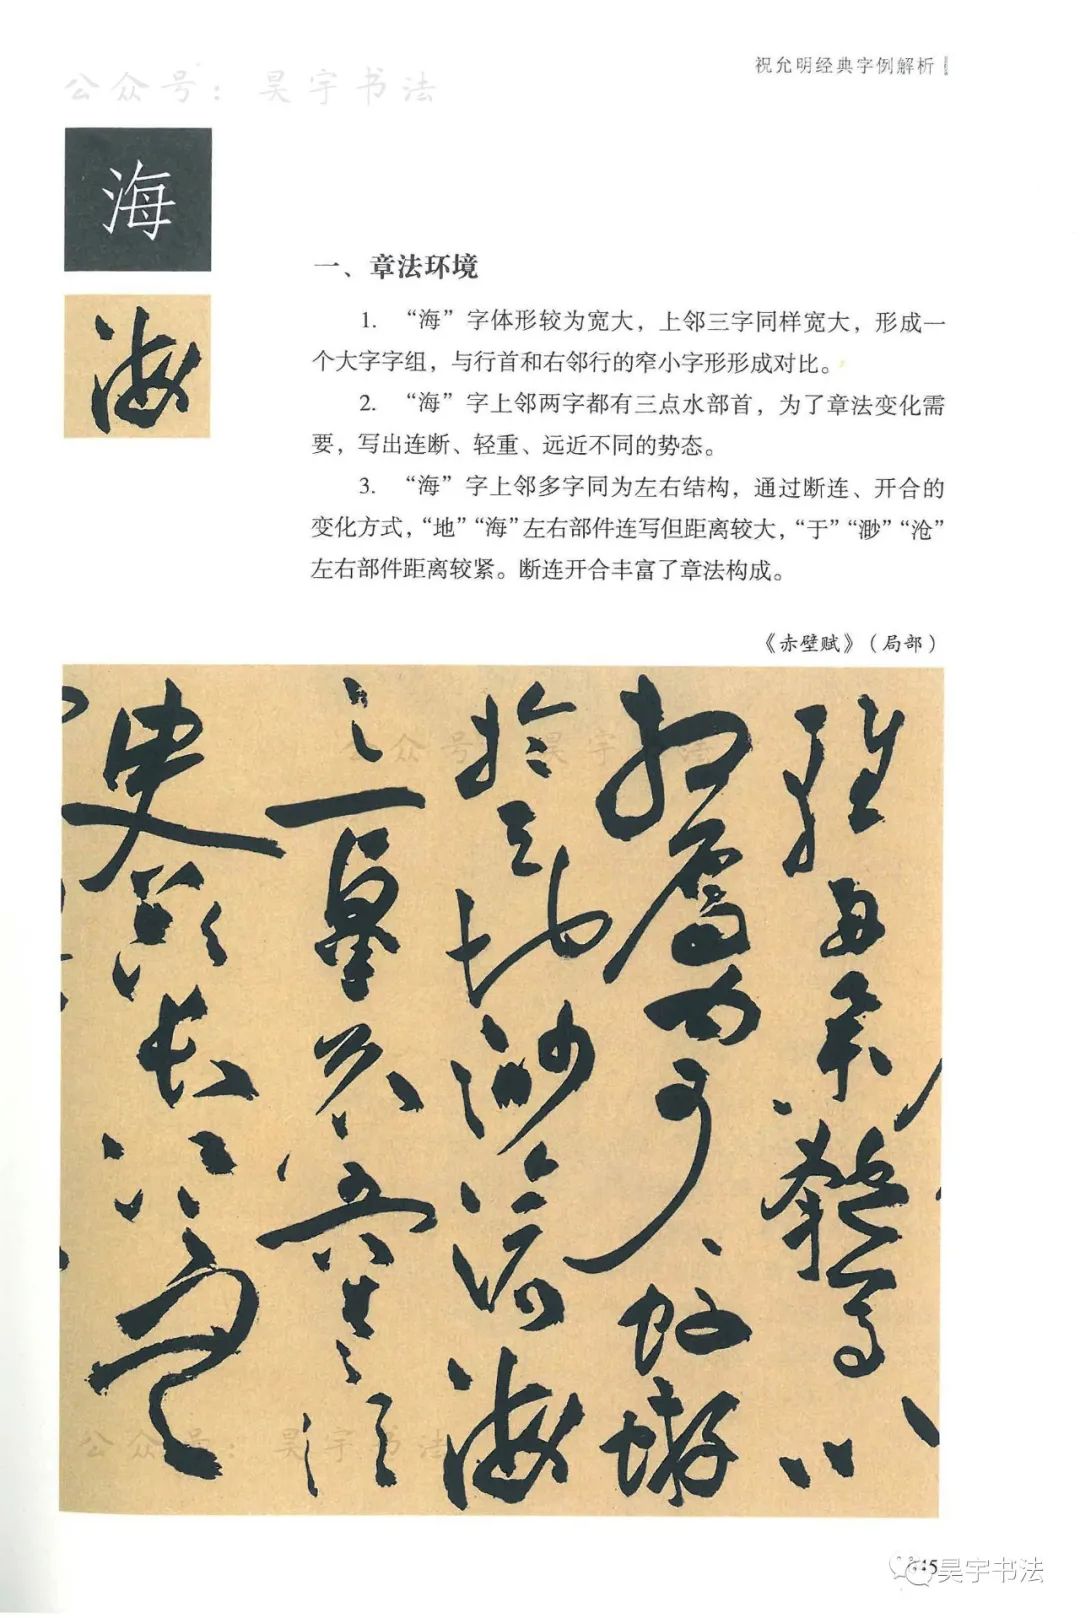 祝允明经典字例解析
公众号：昊宇书法
海
海
一、章法环境
1. “海”字体形较为宽大，上邻三字同样宽大，形成一
个大字字组，与行首和右邻行的窄小字形形成对比。
2. “海”字上邻两字都有三点水部首，为了章法变化需
要，写出连断、轻重、远近不同的势态。
3. “海”字上邻多字同为左右结构，通过断连、开合的
变化方式，“地”“海”左右部件连写但距离较大，“于”“渺”“沧”
左右部件距离较紧。断连开合丰富了章法构成。
《赤壁赋》（局部）
舟舉匏尊以
相屬寄蜉蝣
於天地渺滄海
之一粟哀吾生之須
臾羨長江
公众号：昊宇书法
公众号：昊宇书法
昊宇书法